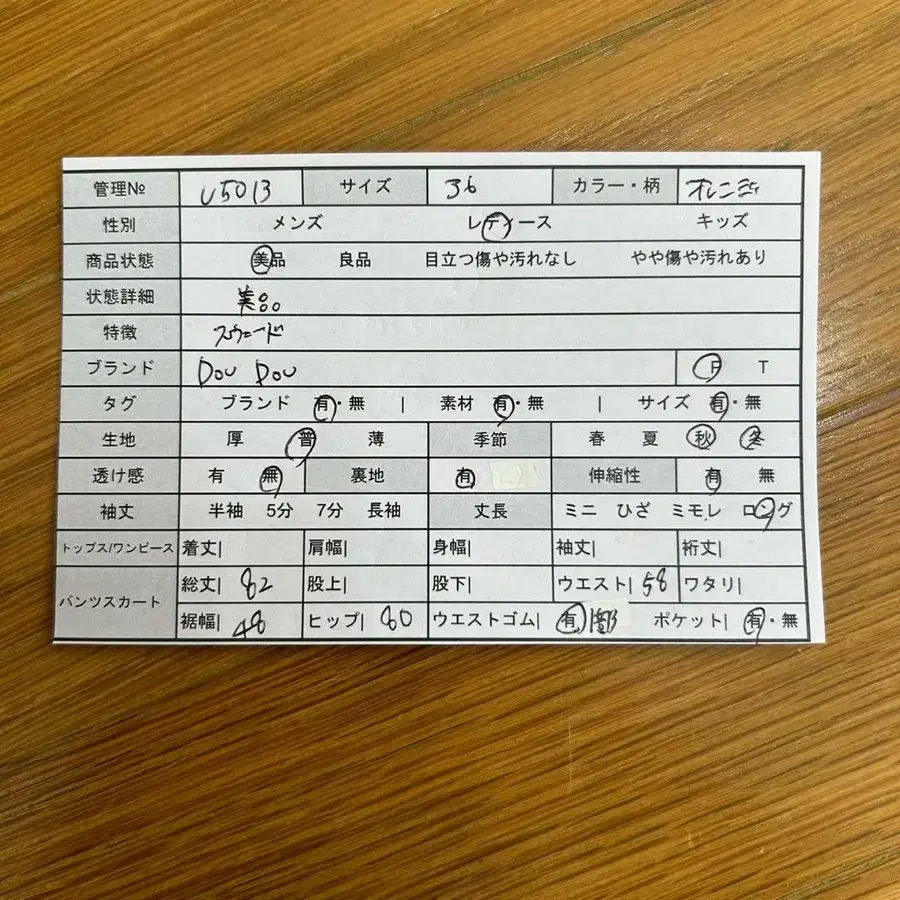 管理№ U5013 サイズ 36 カラー・柄 オレンジ
性別 メンズ レディース キッズ
商品状態 美品 良品 目立つ傷や汚れなし やや傷や汚れあり
状態詳細 美品
特徴 スウェード
ブランド DOU DOU F T
タグ ブランド 有・無 | 素材 有・無 | サイズ 有・無
生地 厚 普 薄 季節 春 夏 秋 冬
透け感 有 無 裏地 有 伸縮性 有 無
袖丈 半袖 5分 7分 長袖 丈長 ミニ ひざ ミモレ ロング
トップス/ワンピース 着丈| 肩幅| 身幅| 袖丈| 裄丈|
パンツスカート 総丈| 82 股上| 股下| ウエスト| 58 ワタリ|
裾幅| 48 ヒップ| 80 ウエストゴム| 有 ポケット| 有・無